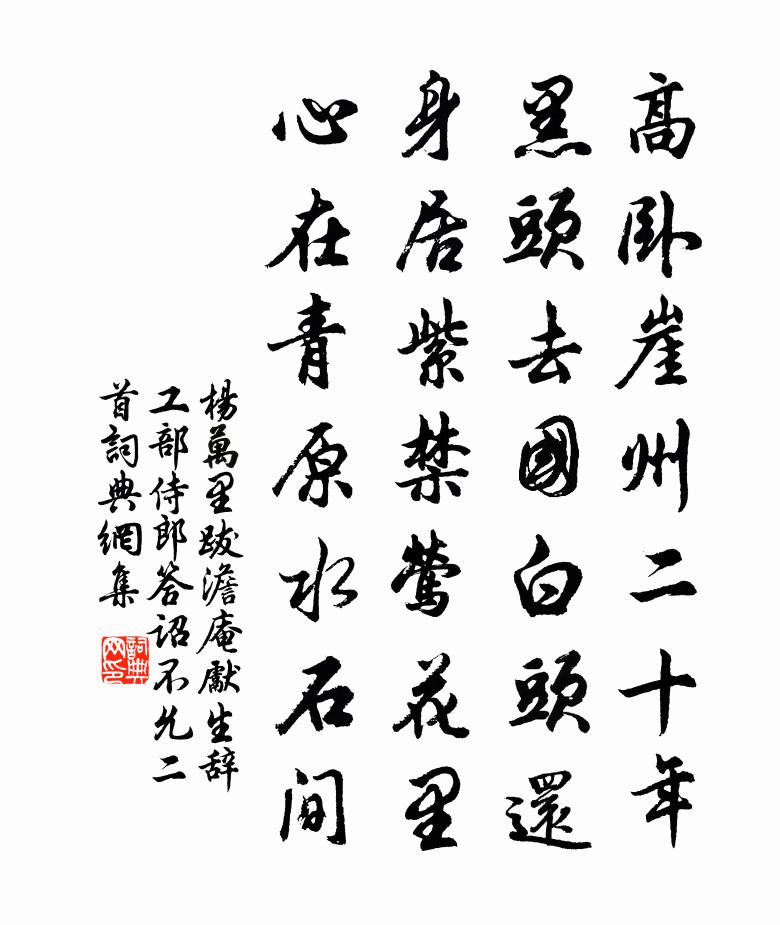 高卧崖州二十年
黑頭去國白頭還
身居紫禁鶯花里
心在青原水石間
楊萬里跋澹庵獻生辞
工部侍郎答詔不允二
首詞典網集
詞典网印